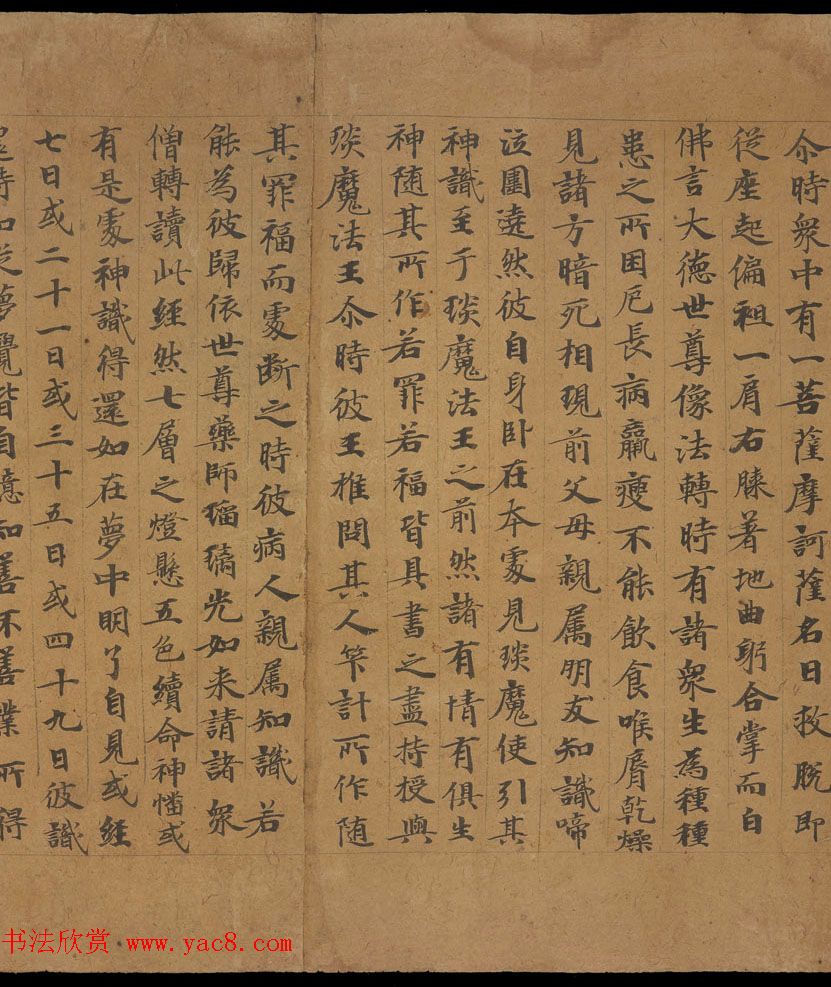 尒時衆中有一菩薩摩訶薩名曰救脱即
從座起偏袒一肩右膝著地曲躬合掌而白
佛言大德世尊像法轉時有諸衆生為種種
患之所困厄長病羸瘦不能飲食喉脣乾燥
見諸方暗死相現前父母親属朋友知識啼
泣圍遶然彼自身卧在夲處見琰魔使引其
神識至于琰魔法王之前然諸有情有俱生
神随其所作若罪若福皆具書之盡持授與
琰魔法王尒時彼王推問其人筭計所作随
其罪福而處断之時彼病人親属知識若
能為彼歸依世尊藥師瑠璃光如来請諸衆
僧轉讀此經然七層之燈懸五色續命神幡或
有是處神識得還如在夢中明了自見或經
七日或二十一日或三十五日或四十九日彼識
還時如從夢覺皆自憶知善不善業所得
书法欣赏 www.yac8.com